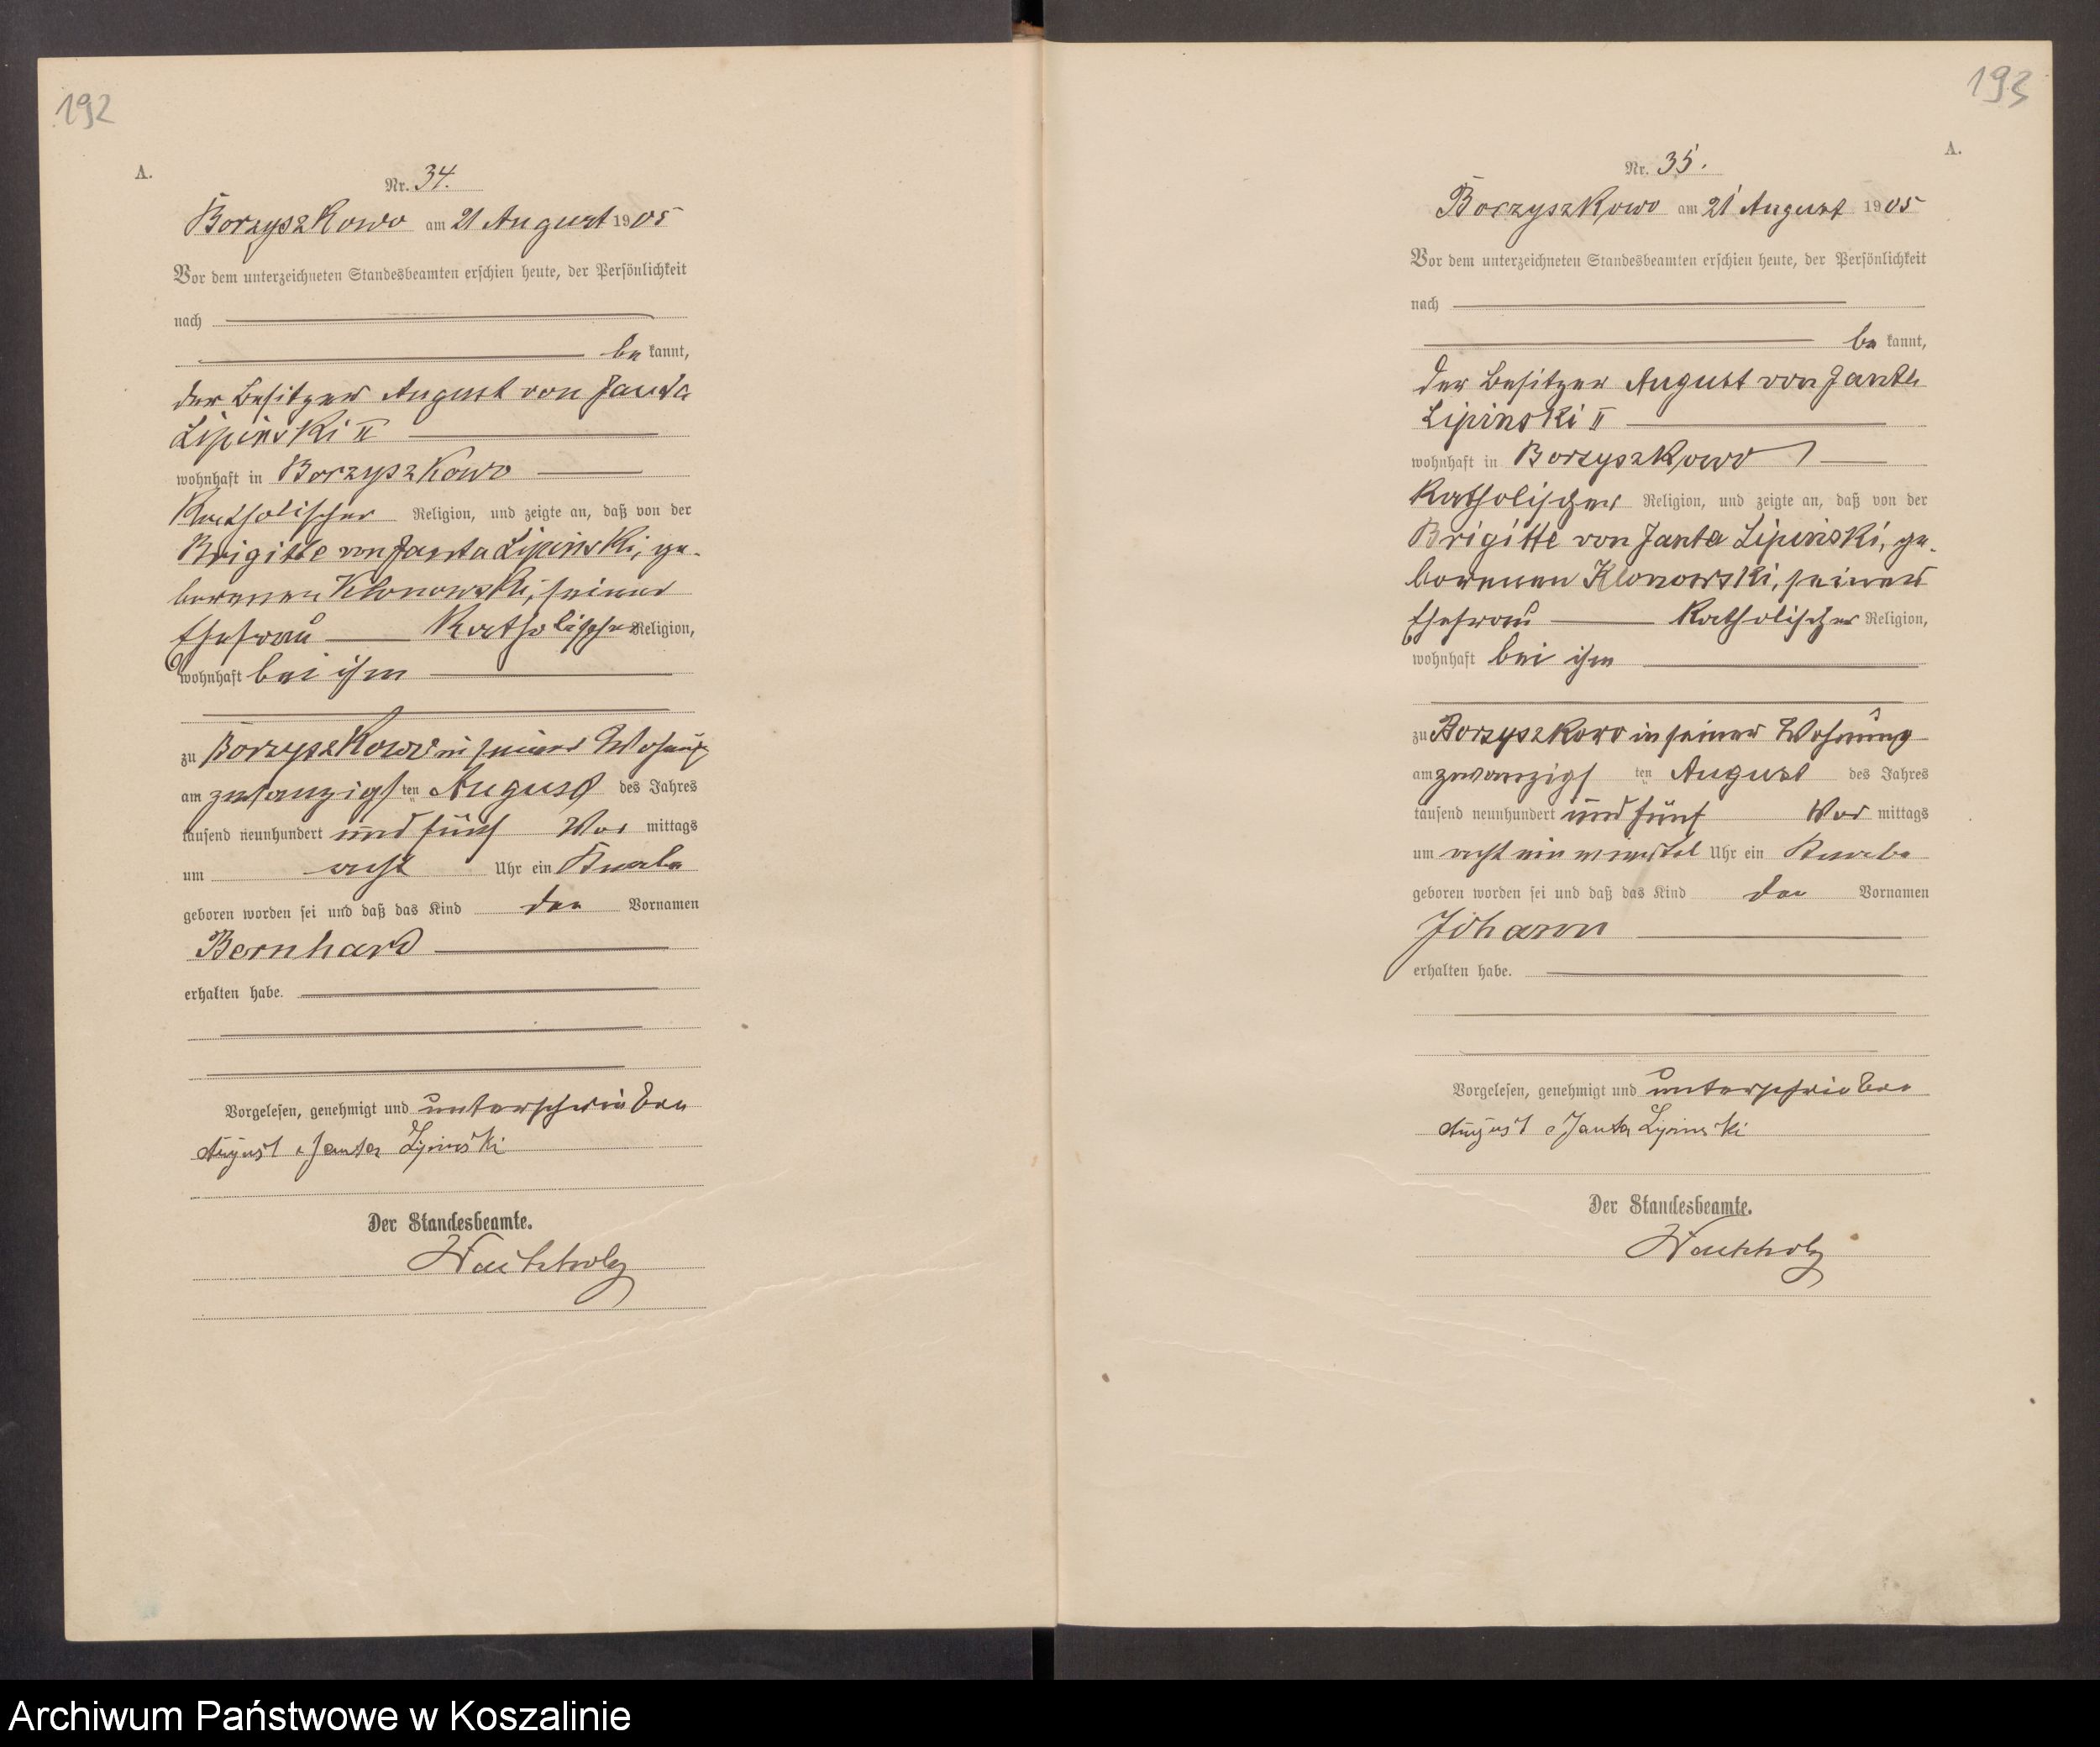 192
A.
Nr. 34.
Borzyszkowo am 21 August 1905
Vor dem unterzeichneten Standesbeamten erschien heute, der Persönlichkeit
nach
be kannt,
der Besitzer August von Janta
Lipinski II
wohnhaft in Borzyszkowo
Katholischer Religion, und zeigte an, daß von der
Brigitte von Janta Lipinski, ge-
borenen Klonowski, seiner
Ehefrau Katholischer Religion,
wohnhaft bei ihm
zu Borzyszkowo in seiner Wohnung
am zwanzigsten August des Jahres
tausend neunhundert und fünf Vor mittags
um acht Uhr ein Knabe
geboren worden sei und daß das Kind den Vornamen
Bernhard
erhalten habe.
Vorgelesen, genehmigt und unterschrieben
August Janta Lipinski
Der Standesbeamte.
Wachholz
193
A.
Nr. 35.
Borzyszkowo am 21 August 1905
Vor dem unterzeichneten Standesbeamten erschien heute, der Persönlichkeit
nach
be kannt,
der Besitzer August von Janta
Lipinski II
wohnhaft in Borzyszkowo
Katholischer Religion, und zeigte an, daß von der
Brigitte von Janta Lipinski, ge-
borenen Klonowski, seiner
Ehefrau Katholischer Religion,
wohnhaft bei ihm
zu Borzyszkowo in seiner Wohnung
am zwanzigsten August des Jahres
tausend neunhundert und fünf Vor mittags
um acht ein viertel Uhr ein Knabe
geboren worden sei und daß das Kind den Vornamen
Johann
erhalten habe.
Vorgelesen, genehmigt und unterschrieben
August Janta Lipinski
Der Standesbeamte.
Wachholz
Archiwum Państwowe w Koszalinie